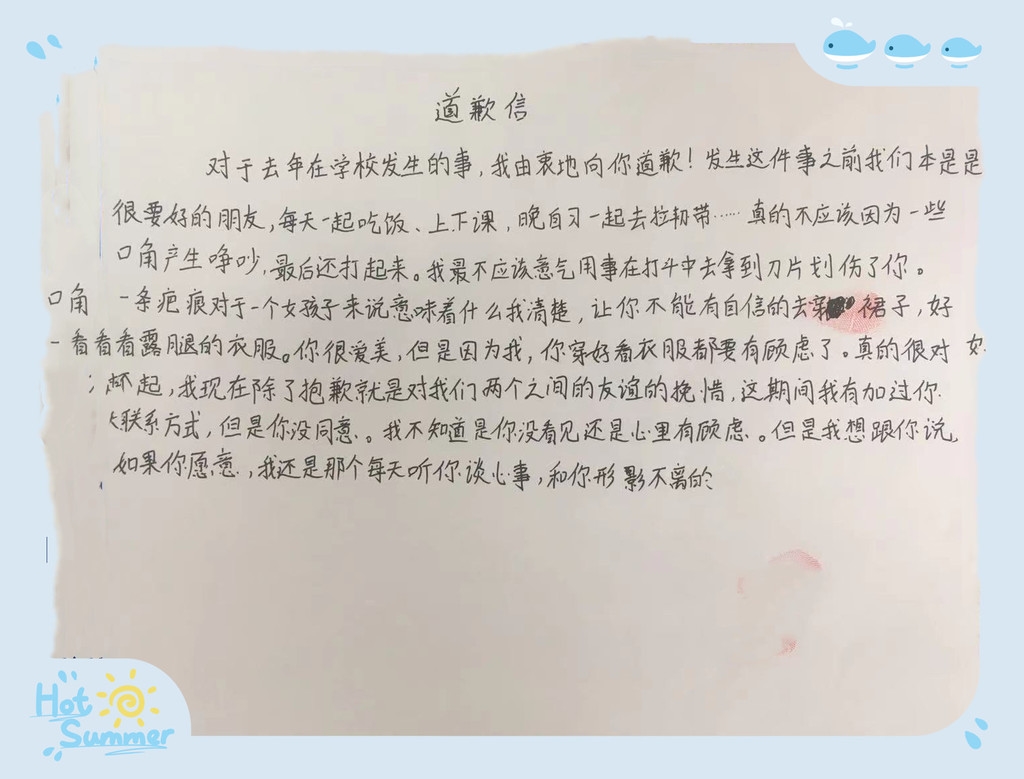 道歉信
对于去年在学校发生的事，我由衷地向你道歉！发生这件事之前我们本是是
很要好的朋友，每天一起吃饭、上下课，晚自习一起去拉韧带……真的不应该因为一些
口角产生争吵，最后还打起来。我最不应该意气用事在打斗中去拿到刀片划伤了你。
口角 一条疤痕对于一个女孩子来说意味着什么我清楚，让你不能有自信的去穿 裙子，好
一看看看露腿的衣服。你很爱美，但是因为我，你穿好看衣服都要有顾虑了。真的很对
起，我现在除了抱歉就是对我们两个之间的友谊的挽惜，这期间我有加过你
联系方式，但是你没同意。我不知道是你没看见还是心里有顾虑。但是我想跟你说，
如果你愿意，我还是那个每天听你谈心事，和你形影不离的
Hot
Summer